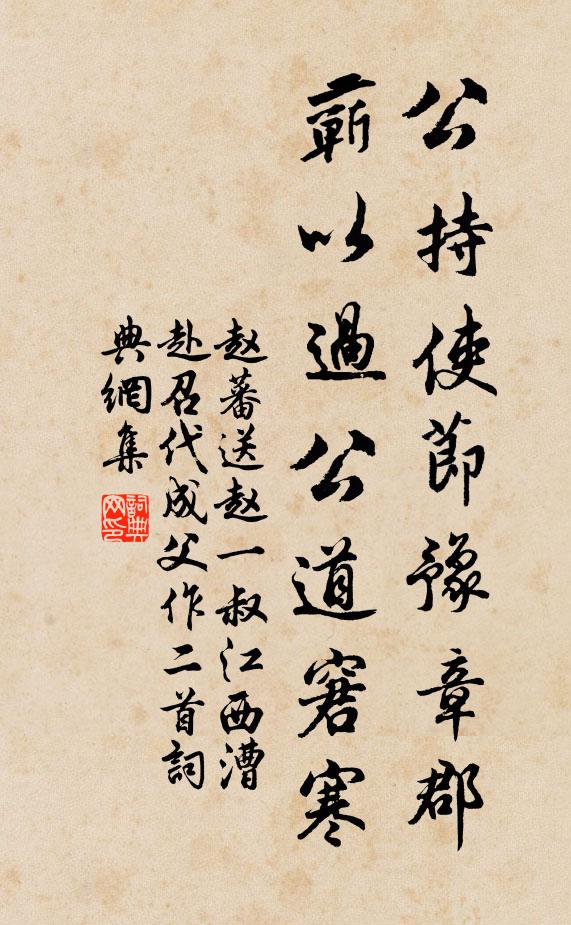 公持使節豫章郡
蕲以過公道窘寒
赵蕃送赵一叔江西漕
赴召代成父作二首詞
典網集
詞典网印